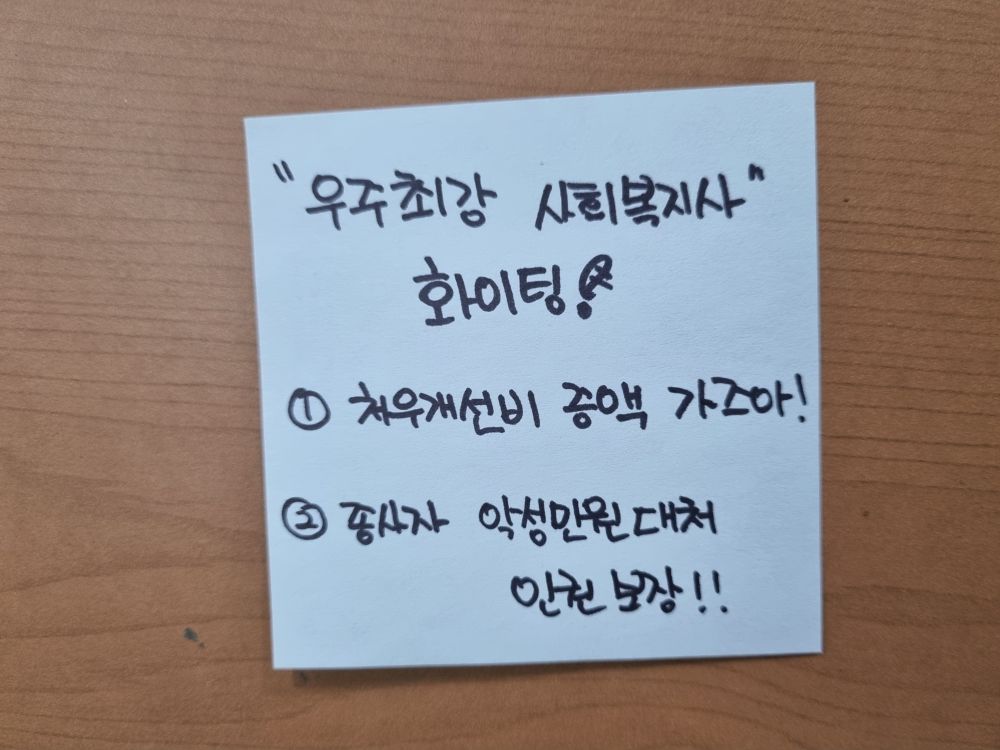 "우주최강 사회복지사"
화이팅!
① 처우개선비 증액 가즈아!
② 종사자 악성민원대처
인권보장!!